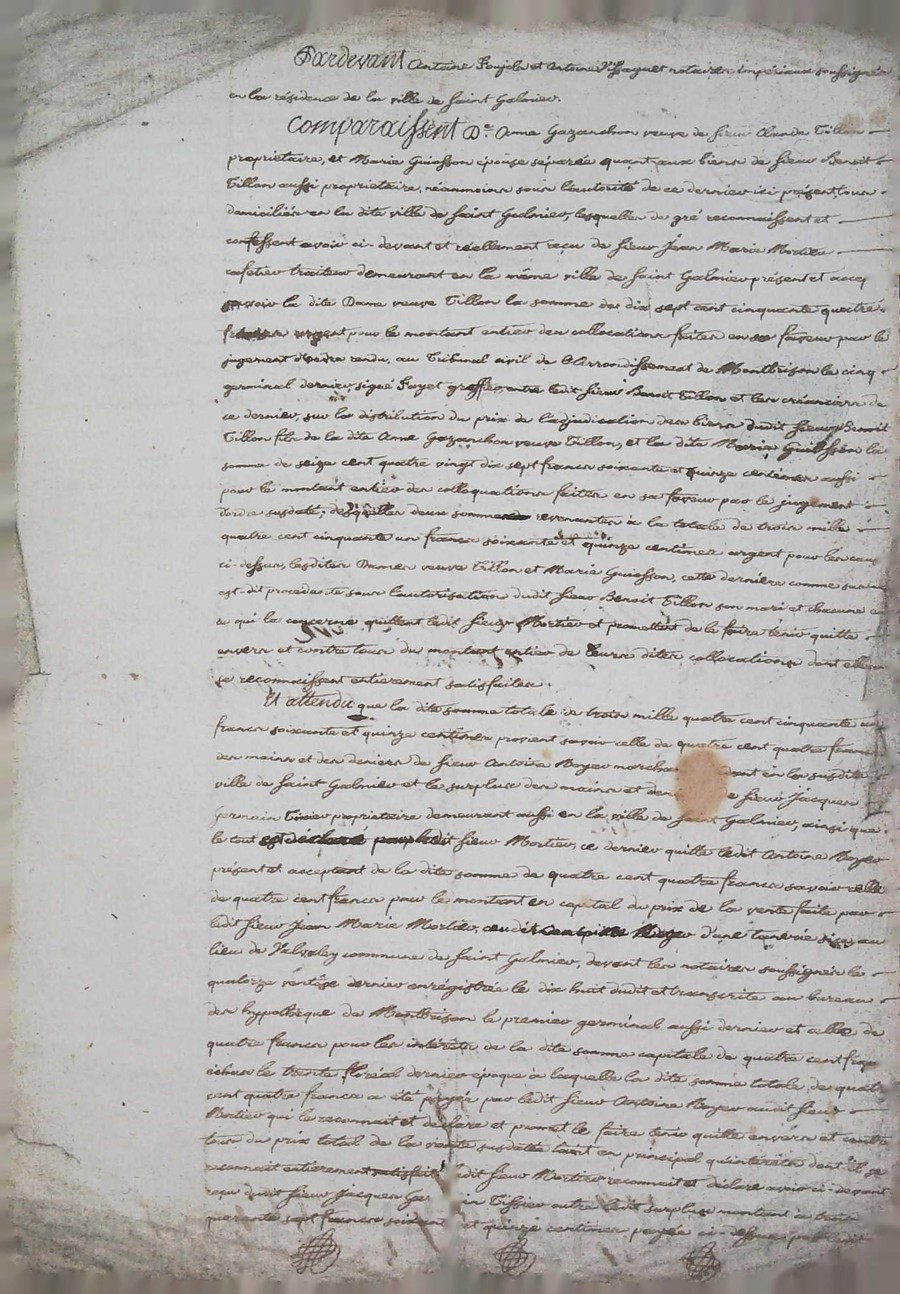 Pardevant Antoine Poujols et Antoine Vissaguet notaires impériaux soussignés
en la résidence de la ville de Saint Galmier.
Comparaissent De. Anne Gazanchon veuve de Sieur Claude Tillon
propriétaire, et Marie Guiosson épouse séparée quant aux biens de Sieur Benoit
Tillon aussi propriétaire, néanmoins sous l'autorité de ce dernier ici présent, tous
domiciliés en la dite ville de Saint Galmier, lesquelles de gré reconnaissent et
confessent avoir ci-devant et réellement reçu de Sieur Jean Marie Mortier
cafetier traiteur demeurant en la même ville de Saint Galmier présent et accep
savoir la dite Dame veuve Tillon la somme de dix sept cent cinquante quatre
francs argent pour le montant entier des collocations faites en sa faveur par le
jugement d'ordre rendu, au Tribunal civil de l'Arrondissement de Montbrison le cinq
germinal dernier, signé Puyet greffier, entre ledit Sieur Benoit Tillon et les créanciers de
ce dernier, sur la distribution du prix de l'adjudication des biens dudit Sieur Benoit
Tillon fils de la dite Anne Gazanchon veuve Tillon, et la dite Marie Guiosson la
somme de seize cent quatre vingt dix sept francs soixante et quinze centimes aussi
pour le montant entier des colloquations faites en sa faveur par le jugement
d'ordre susdaté; desquelles deux sommes revenantes à la totale de trois mille
quatre cent cinquante un francs soixante et quinze centimes argent pour les causes
ci-dessus, lesdites Dames veuve Tillon et Marie Guiosson, cette dernière comme
est-dit procédante sous l'autorisation dudit Sieur Benoit Tillon son mari et chacune en
ce qui la concerne quittent ledit Sieur Mortier et promettent de le faire tenir quitte
envers et contre tous du montant entier de leurs dites collocations dont elles
se reconnaissent entièrement satisfaites.
Et attendu que la dite somme totale de trois mille quatre cent cinquante un
francs soixante et quinze centimes provient savoir celle de quatre cent quatre francs
des mains et des deniers de Sieur Antoine Boyer marchand en la susdite
ville de Saint Galmier et le surplus des mains et Sieur Jacques
Germain Tissier propriétaire demeurant aussi en la ville de Saint Galmier, ainsi que
le tout est déclaré par ledit Sieur Mortier, ce dernier quitte ledit Antoine Boyer
présent et acceptant de la dite somme de quatre cent quatre francs savoir celle
de quatre cent francs pour le montant en capital du prix de la vente faite par
ledit Sieur Jean Marie Mortier, audit Antoine Boyer d'une tannerie sise au
lieu de commune de Saint Galmier, devant les notaires soussignés le
quatorze ventôse dernier enregistrée le dix huit dudit et transcrite au bureau
des hypothèque de Montbrison le premier germinal aussi dernier et celle de
quatre francs pour les intérêts de la dite somme capitale de quatre cent francs
échus le trente floréal dernier époque à laquelle la dite somme totale de quatre
cent quatre francs a été payée par ledit Sieur Antoine Boyer audit Sieur
Mortier qui le reconnait et déclare et promet le faire tenir quitte envers et contre
tous du prix total de la vente susdatée tant en principal qu'intérêts dont il se
reconnait entièrement satisfait; ledit Sieur Mortier reconnait et déclare avoir ci-devant
reçu dudit Sieur Jacques Germain Tissier autre ledit surplus montant à trois
quarante sept francs soixante et quinze centimes payés ci-dessus par ledit